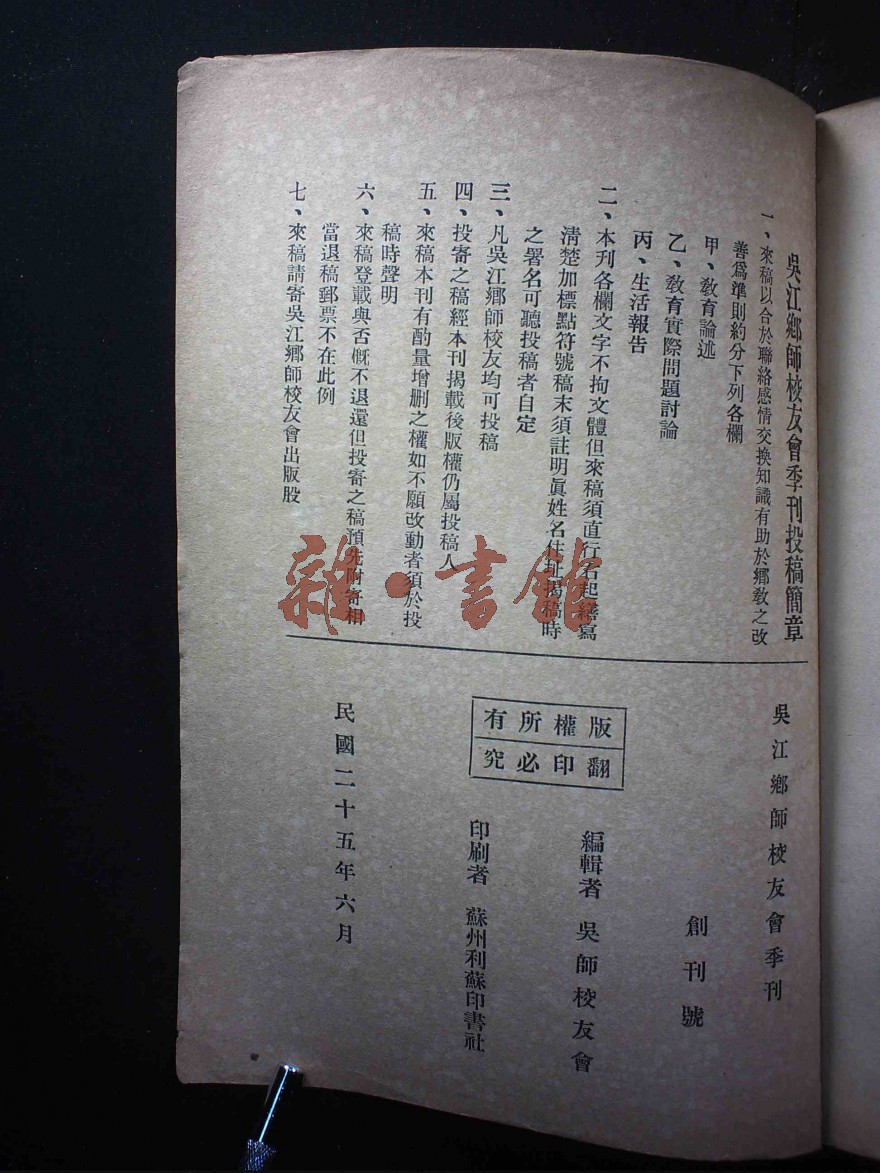 吳江鄉師校友會季刊投稿簡章
一、來稿以合於聯絡感情交換知識有助於鄉教之改
善爲準則約分下列各欄
甲、教育論述
乙、教育實際問題討論
丙、生活報告
二、本刊各欄文字不拘文體但來稿須直行右起繕寫
清楚加標點符號稿末須註明眞姓名住址揭稿時
之署名可聽投稿者自定
三、凡吳江鄉師校友均可投稿
四、投寄之稿經本刊揭載後版權仍屬投稿人
五、來稿本刊有酌量增刪之權如不願改動者須於投
稿時聲明
六、來稿登載與否概不退還但投寄之稿預先附寄相
當退稿郵票不在此例
七、來稿請寄吳江鄉師校友會出版股
吳江鄉師校友會季刊
創刊號
版權所有
翻印必究
編輯者 吳師校友會
印刷者 蘇州利蘇印書社
民國二十五年六月
雜·書館